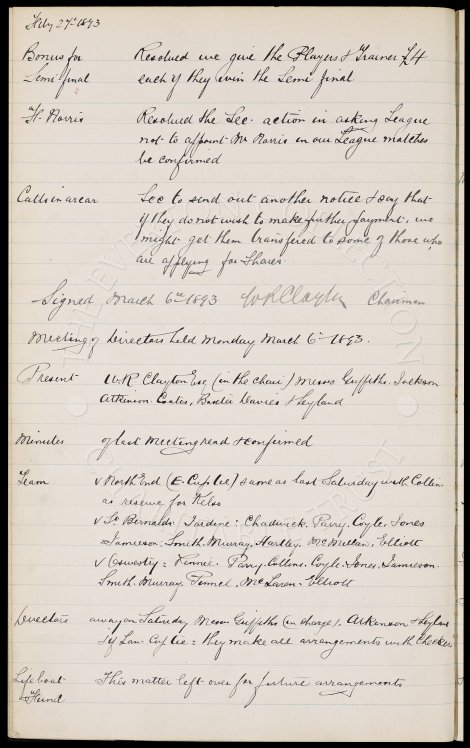 Feby 27th 1893
Bonus for Resolved we give the Players & Trainer £4
Semi-final each if they win the Semi final
W. Norris Resolved the Sec. action in asking League
not to appoint Mr Norris in our League matches
be confirmed
Calls in arear Sec to send out another notice & say that
if they do not wish to make further payment, we
might get them transfered to some of those who
are applying for Shares.
Signed March 6th 1893 W R Clayton Chairman
Meeting of Directors held Monday March 6th 1893.
Present W.R. Clayton Esq (in the chair) Messrs Griffiths. Jackson
Atkinson. Coates, Baxter Davies & Leyland
Minutes of last Meeting read & confirmed
Team v North End (E. Cup tie) same as last Saturday with Collins
as reserve for Kelso
v St Bernards: Jardine: Chadwick. Parry. Coyle. Jones
Jamieson, Smith. Murray. Hartley. McMillan. Elliott
v Oswestry: Rennie. Parry. Collins. Coyle. Jones. Jamieson.
Smith. Murray. Pinnel. McLaren. Elliott
Directors away on Saturday Messrs Griffiths (in charge), Atkinson & Leyland
If Lan. Cup tie = they make all arrangements with Checkers
Life boat This matter left over for future arrangements
Fund